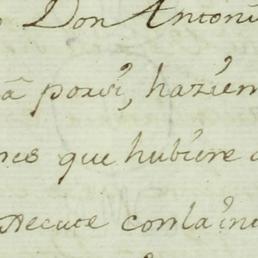 Don Antoni
ā por sí, hazien
nes que hubiere
execute con la in